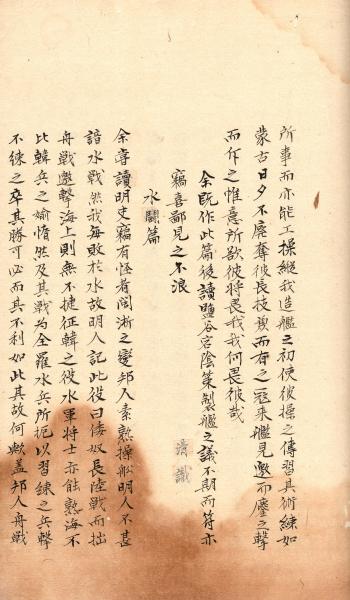 所事而亦能工操縱我造艦之初使彼操之傳習其術練如
蒙古日夕不廢奪彼長技複而有之冠來艦見邀而鏖之擊
而斥之惟意所欲彼將畏我我何畏彼哉
余既作此篇後讀鹽谷宕陰策製艦之議不期而符亦
竊喜鄙見之不浪
水鬪篇
余嘗讀明史竊有怪者閩浙之變邦人素熟操船明人不甚
諳水戰然我每敗於水故明人記此役曰倭奴長陸戰而拙
舟戰邀擊海上則無不捷征韓之役水軍將士亦能熟海不
比韓兵之媮惰然及其戰為全羅水兵所扼以習練之兵擊
不練之卒其勝可必而其不利如此其故何歟蓋邦人舟戰